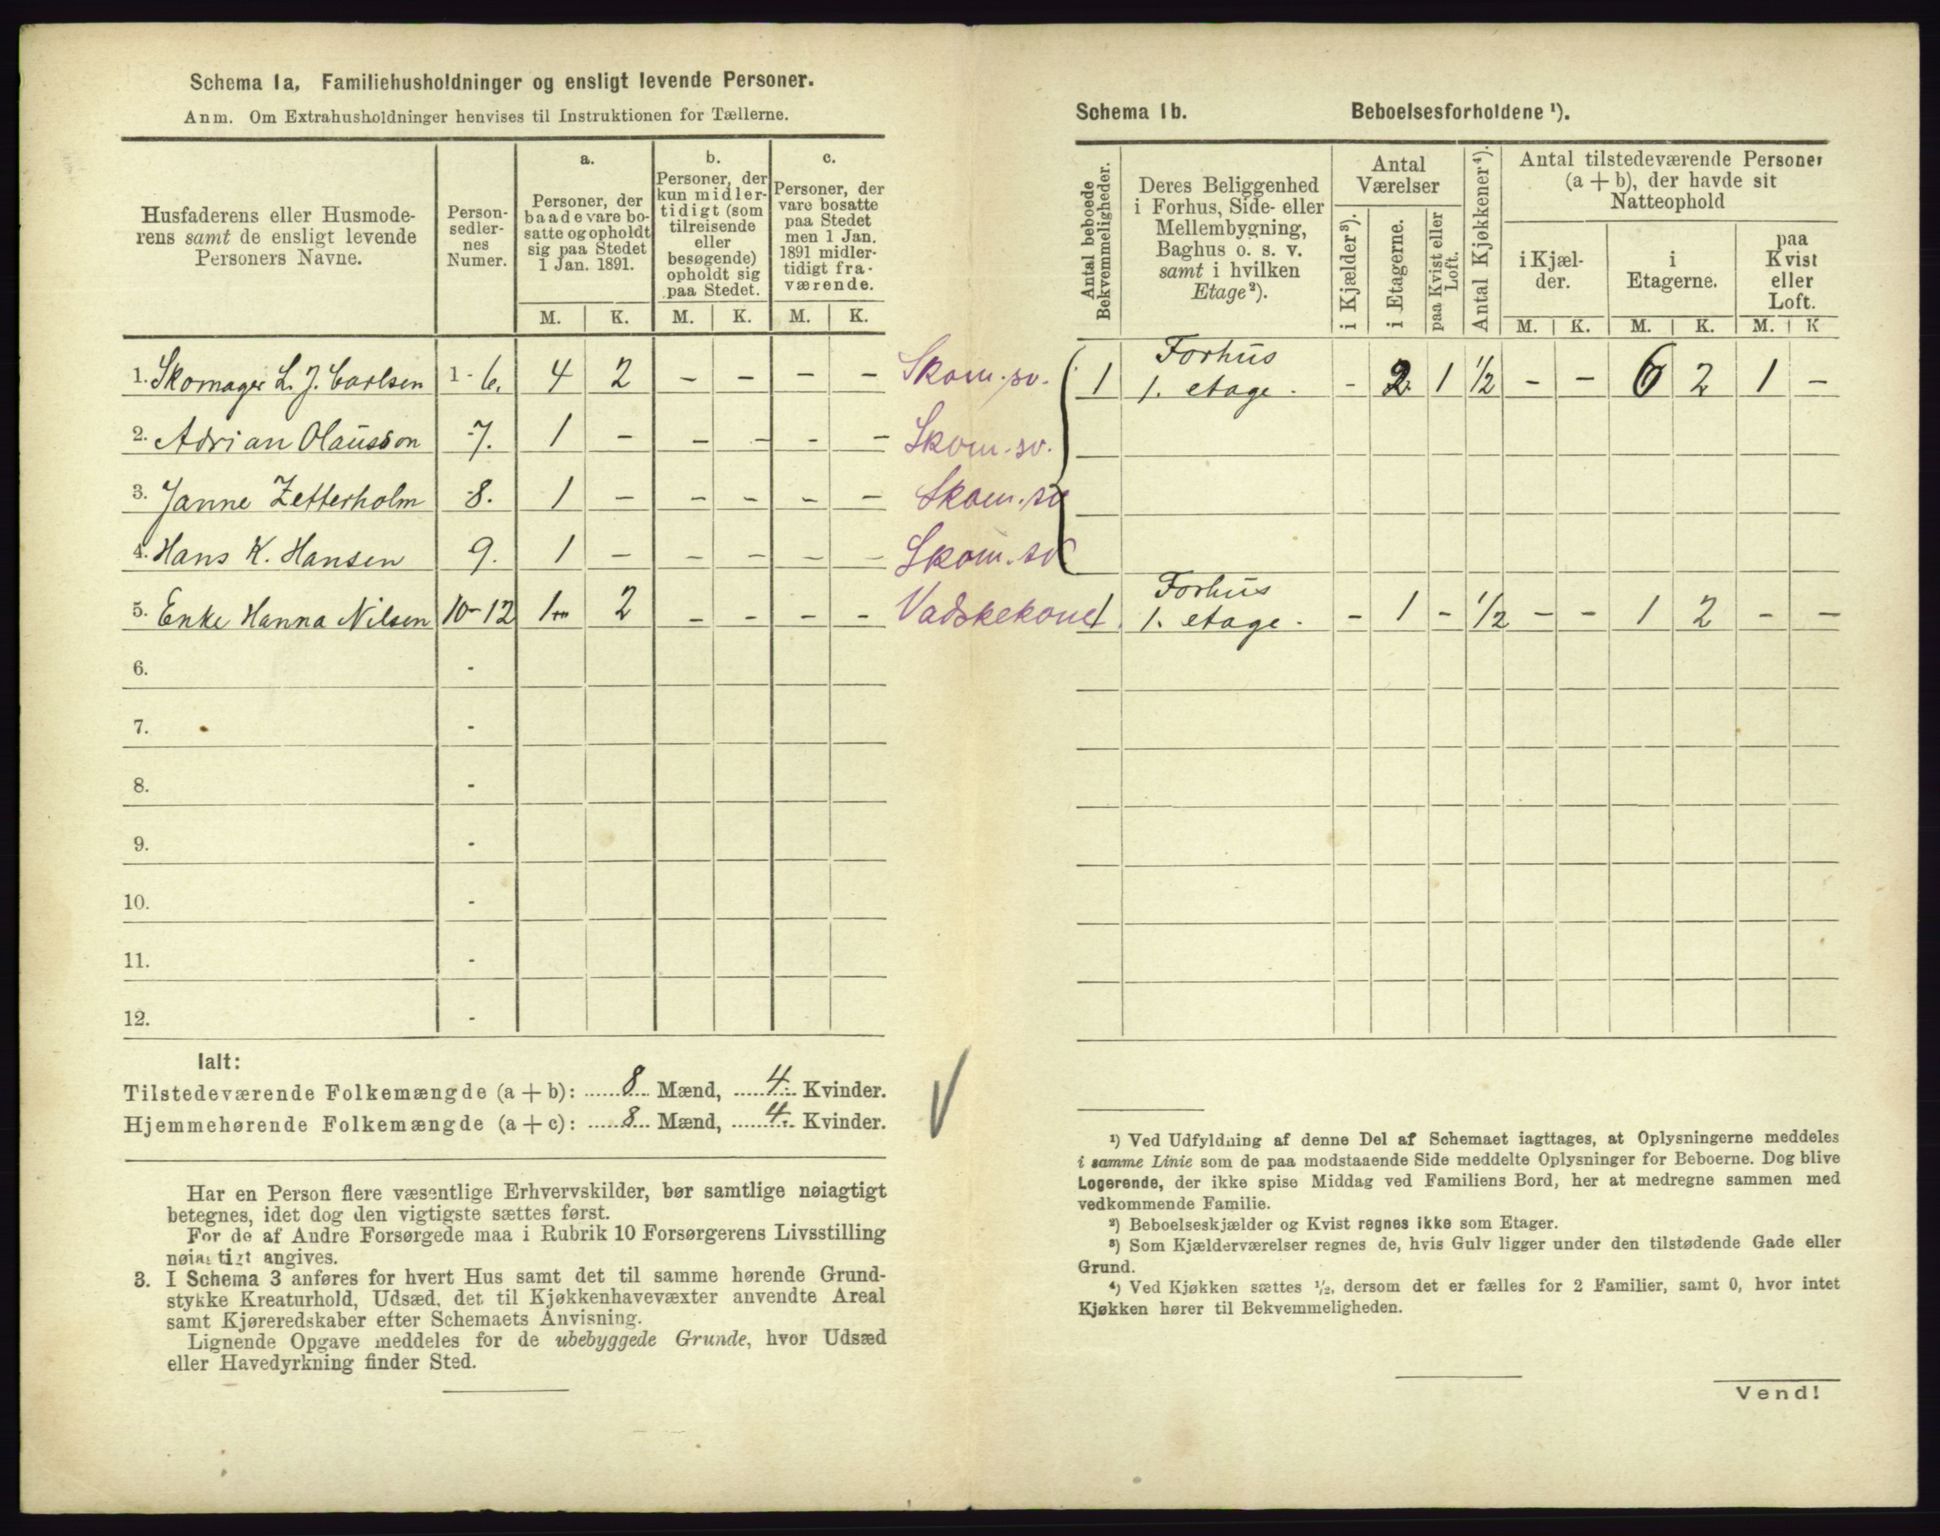 Schema 1a, Familiehusholdninger og ensligt levende Personer.
Anm. Om Extrahusholdninger henvises til Instruktionen for Tællerne.
Husfaderens eller Husmode-
rens samt de ensligt levende
Personers Navne.
Person-
sedler-
nes
Numer.
a.
Personer, der
baade vare bo-
satte og opholdt
sig paa Stedet
1 Jan. 1891.
b.
Personer, der
kun midler-
tidigt (som
tilreisende
eller
besøgende)
opholdt sig
paa Stedet.
c.
Personer, der
vare bosatte
paa Stedet
men 1 Jan.
1891 midler-
tidigt fra-
værende.
M. K. M. K. M. K.
1. Skomager L. J. Carlsen 1 - 6. 4 2 - - - - Skom. sv.
2. Adrian Olausson - 7. 1 - - - - - Skom. sv.
3. Janne Zetterholm - 8. 1 - - - - - Skom. sv
4. Hans K. Hansen 9. 1 - - - - - Skom. sv
5. Enke Hanna Nilsen 10 - 12 1 2 - - - - Vadskekone
6. -
7. -
8. -
9. -
10. -
11. -
12. -
Ialt:
Tilstedeværende Folkemængde (a + b): 8 Mænd, 4. Kvinder.
Hjemmehørende Folkemængde (a + c): 8 Mænd, 4. Kvinder.
Har en Person flere væsentlige Erhvervskilder, bør samtlige nøiagtigt
betegnes, idet dog den vigtigste sættes først.
For de af Andre Forsørgede maa i Rubrik 10 Forsørgerens Livsstilling
nøiagtigt angives.
3. I Schema 3 anføres for hvert Hus samt det til samme hørende Grund-
stykke Kreaturhold, Udsæd, det til Kjøkkenhavevæxter anvendte Areal
samt Kjøreredskaber efter Schemaets Anvisning.
Lignende Opgave meddeles for de ubebyggede Grunde, hvor Udsæd
eller Havedyrkning finder Sted.
Schema 1b. Beboelsesforholdene ¹).
Antal beboede
Bekvemmeligheder.
Deres Beliggenhed
i Forhus, Side- eller
Mellembygning,
Baghus o. s. v.
samt i hvilken
Etage²).
Antal
Værelser
i Kjælder³).
i Etagerne.
paa Kvist eller
Loft.
Antal Kjøkkener⁴).
Antal tilstedeværende Personer
(a + b), der havde sit
Natteophold
i Kjæl-
der.
i
Etagerne.
paa
Kvist
eller
Loft.
M. K. M. K. M. K
1 Forhus
1. etage. - 2 1 1/2 - - 6 2 1 -
1 Forhus
1. etage. - 1 - 1/2 - - 1 2 - -
¹) Ved Udfyldning af denne Del af Schemaet iagttages, at Oplysningerne meddeles
i samme Linie som de paa modstaaende Side meddelte Oplysninger for Beboerne. Dog blive
Logerende, der ikke spise Middag ved Familiens Bord, her at medregne sammen med
vedkommende Familie.
²) Beboelseskjælder og Kvist regnes ikke som Etager.
³) Som Kjælderværelser regnes de, hvis Gulv ligger under den tilstødende Gade eller
Grund.
⁴) Ved Kjøkken sættes ½, dersom det er fælles for 2 Familier, samt 0, hvor intet
Kjøkken hører til Bekvemmeligheden.
Vend!